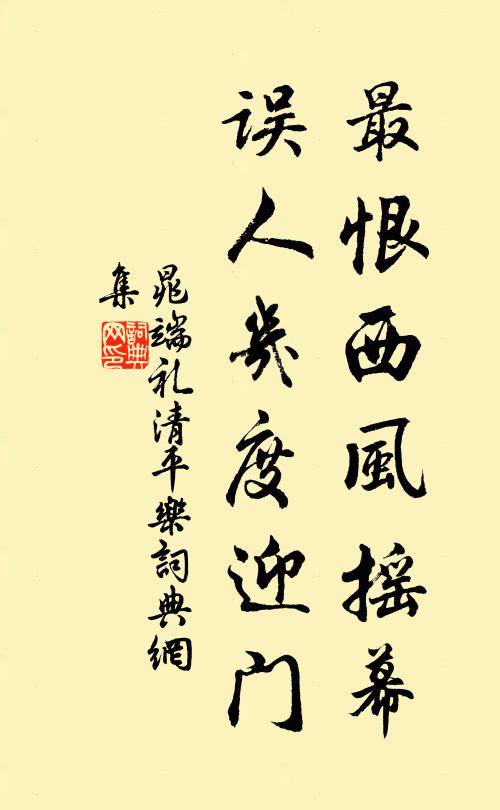 最恨西風摇幕
误人幾度迎门
晁端礼清平樂詞典網
集
詞典
网印